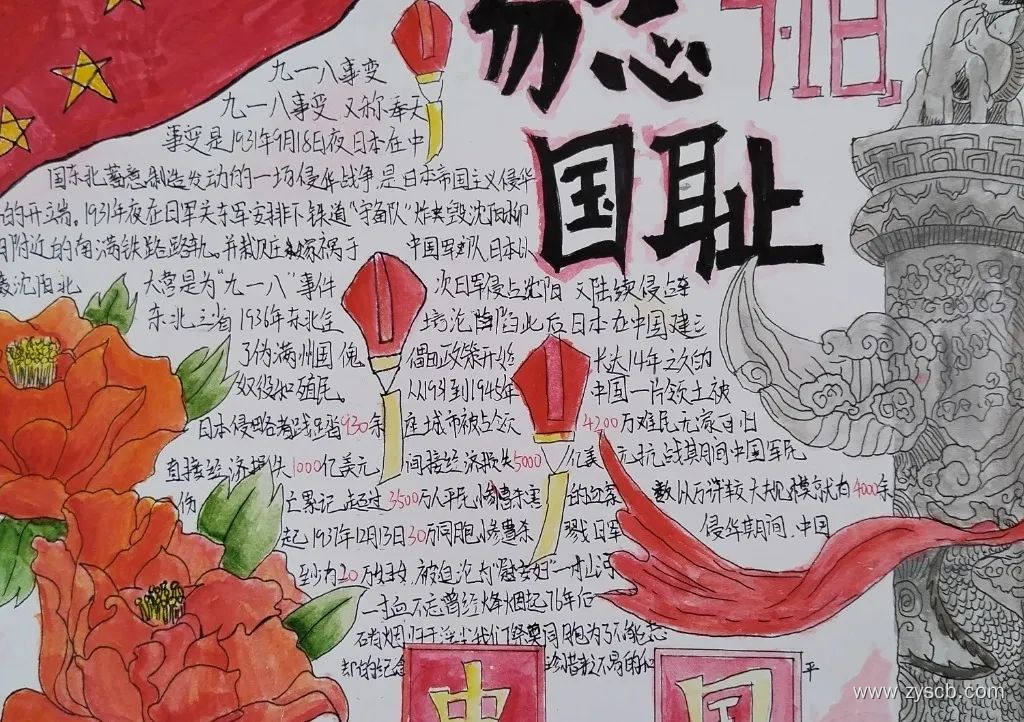 勿忘 9.18
国耻
九一八事变
九一八事变 又称奉天
事变是1931年9月18日夜日本在中
国东北蓄意制造发动的一场侵华战争是日本帝国主义侵华
的开端。1931年夜在日军关东军安排下铁道"守备队"炸毁沈阳柳
附近的南满铁路路轨。并栽赃嫁祸于 中国军队日本以
沈阳北 大营是为"九一八"事件 次日军侵占沈阳 又陆续侵占
东北三省1936年东北全 境沦陷此后日本在中国建立
了伪满州国傀 儡政策开始 长达14年之久的
奴役和殖民。 从1931到1945年 中国一片领土被
日本侵略者践踏930余 座城市被占领 4200万难民无家可归
直接经济损失1000亿美元 间接经济损失5000 亿美 元抗战其期间中国军民
伤 亡累记 超过3500万人平民惨遭杀害 的血案 数以万计较大规模就有4000余
起1937年12月13日30万同胞惨遭杀 戮日军 侵华期间.中国
至少有20万妇女.被迫沦为"慰安妇"一寸山河
一寸血不忘曾经烽烟起76年后
硝烟归于 我们 同胞为了
却的纪念 珍惜 不易的和 平
中 国
www.zyscb.com